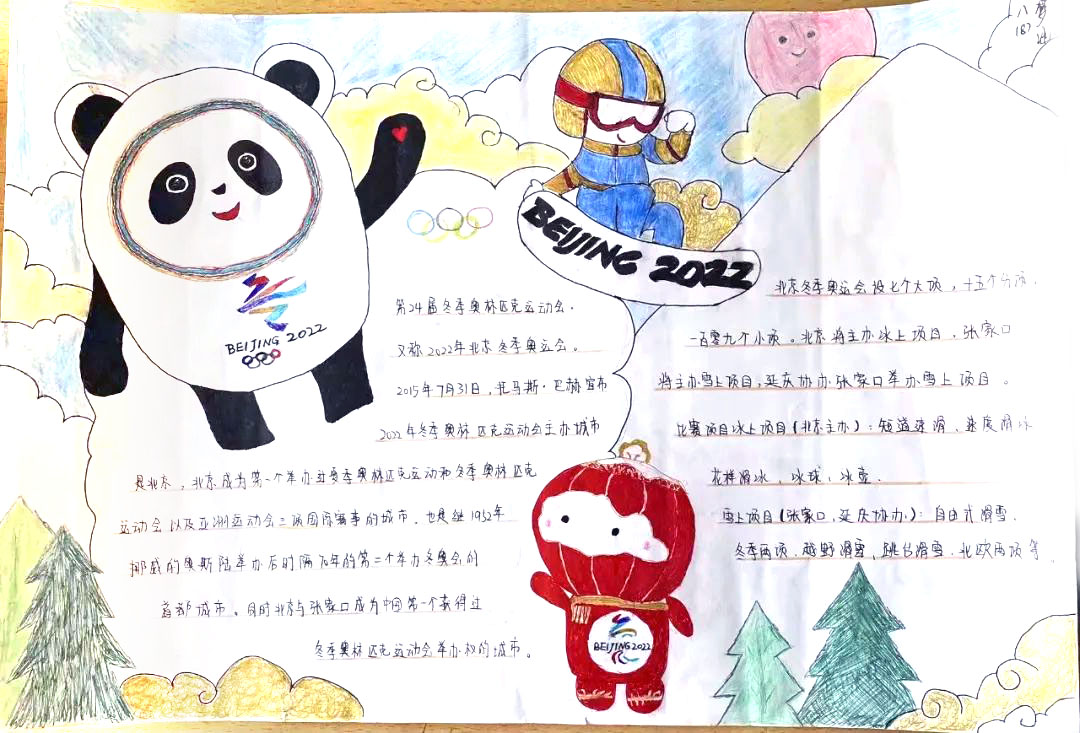 八
(8)
BEIJING 2022
BEIJING 2022
第24届冬季奥林匹克运动会.
又称2022年北京冬季奥运会。
2015年7月31日,托马斯·巴赫宣布
2022年冬季奥林匹克运动会主办城市
是北京,北京成为第一个举办过夏季奥林匹克运动和冬季奥林匹克
运动会以及亚洲运动会三项国际赛事的城市.也是继1952年
挪威的奥斯陆举办后时隔70年的第二个举办冬奥会的
首都城市。同时北京与张家口成为中国第一个获得过
冬季奥林匹克运动会举办权的城市。
北京冬季奥运会设七个大项,十五个分项.
一百零九个小项。北京将主办冰上项目.张家口
将主办雪上项目,延庆协办张家口举办雪上项目。
比赛项目冰上项目(北京主办):短道速滑.速度滑冰
花样滑冰、冰球、冰壶.
雪上项目(张家口,延庆协办):自由式滑雪.
冬季两项.越野滑雪、跳台滑雪.北欧两项等
BEIJING 2022